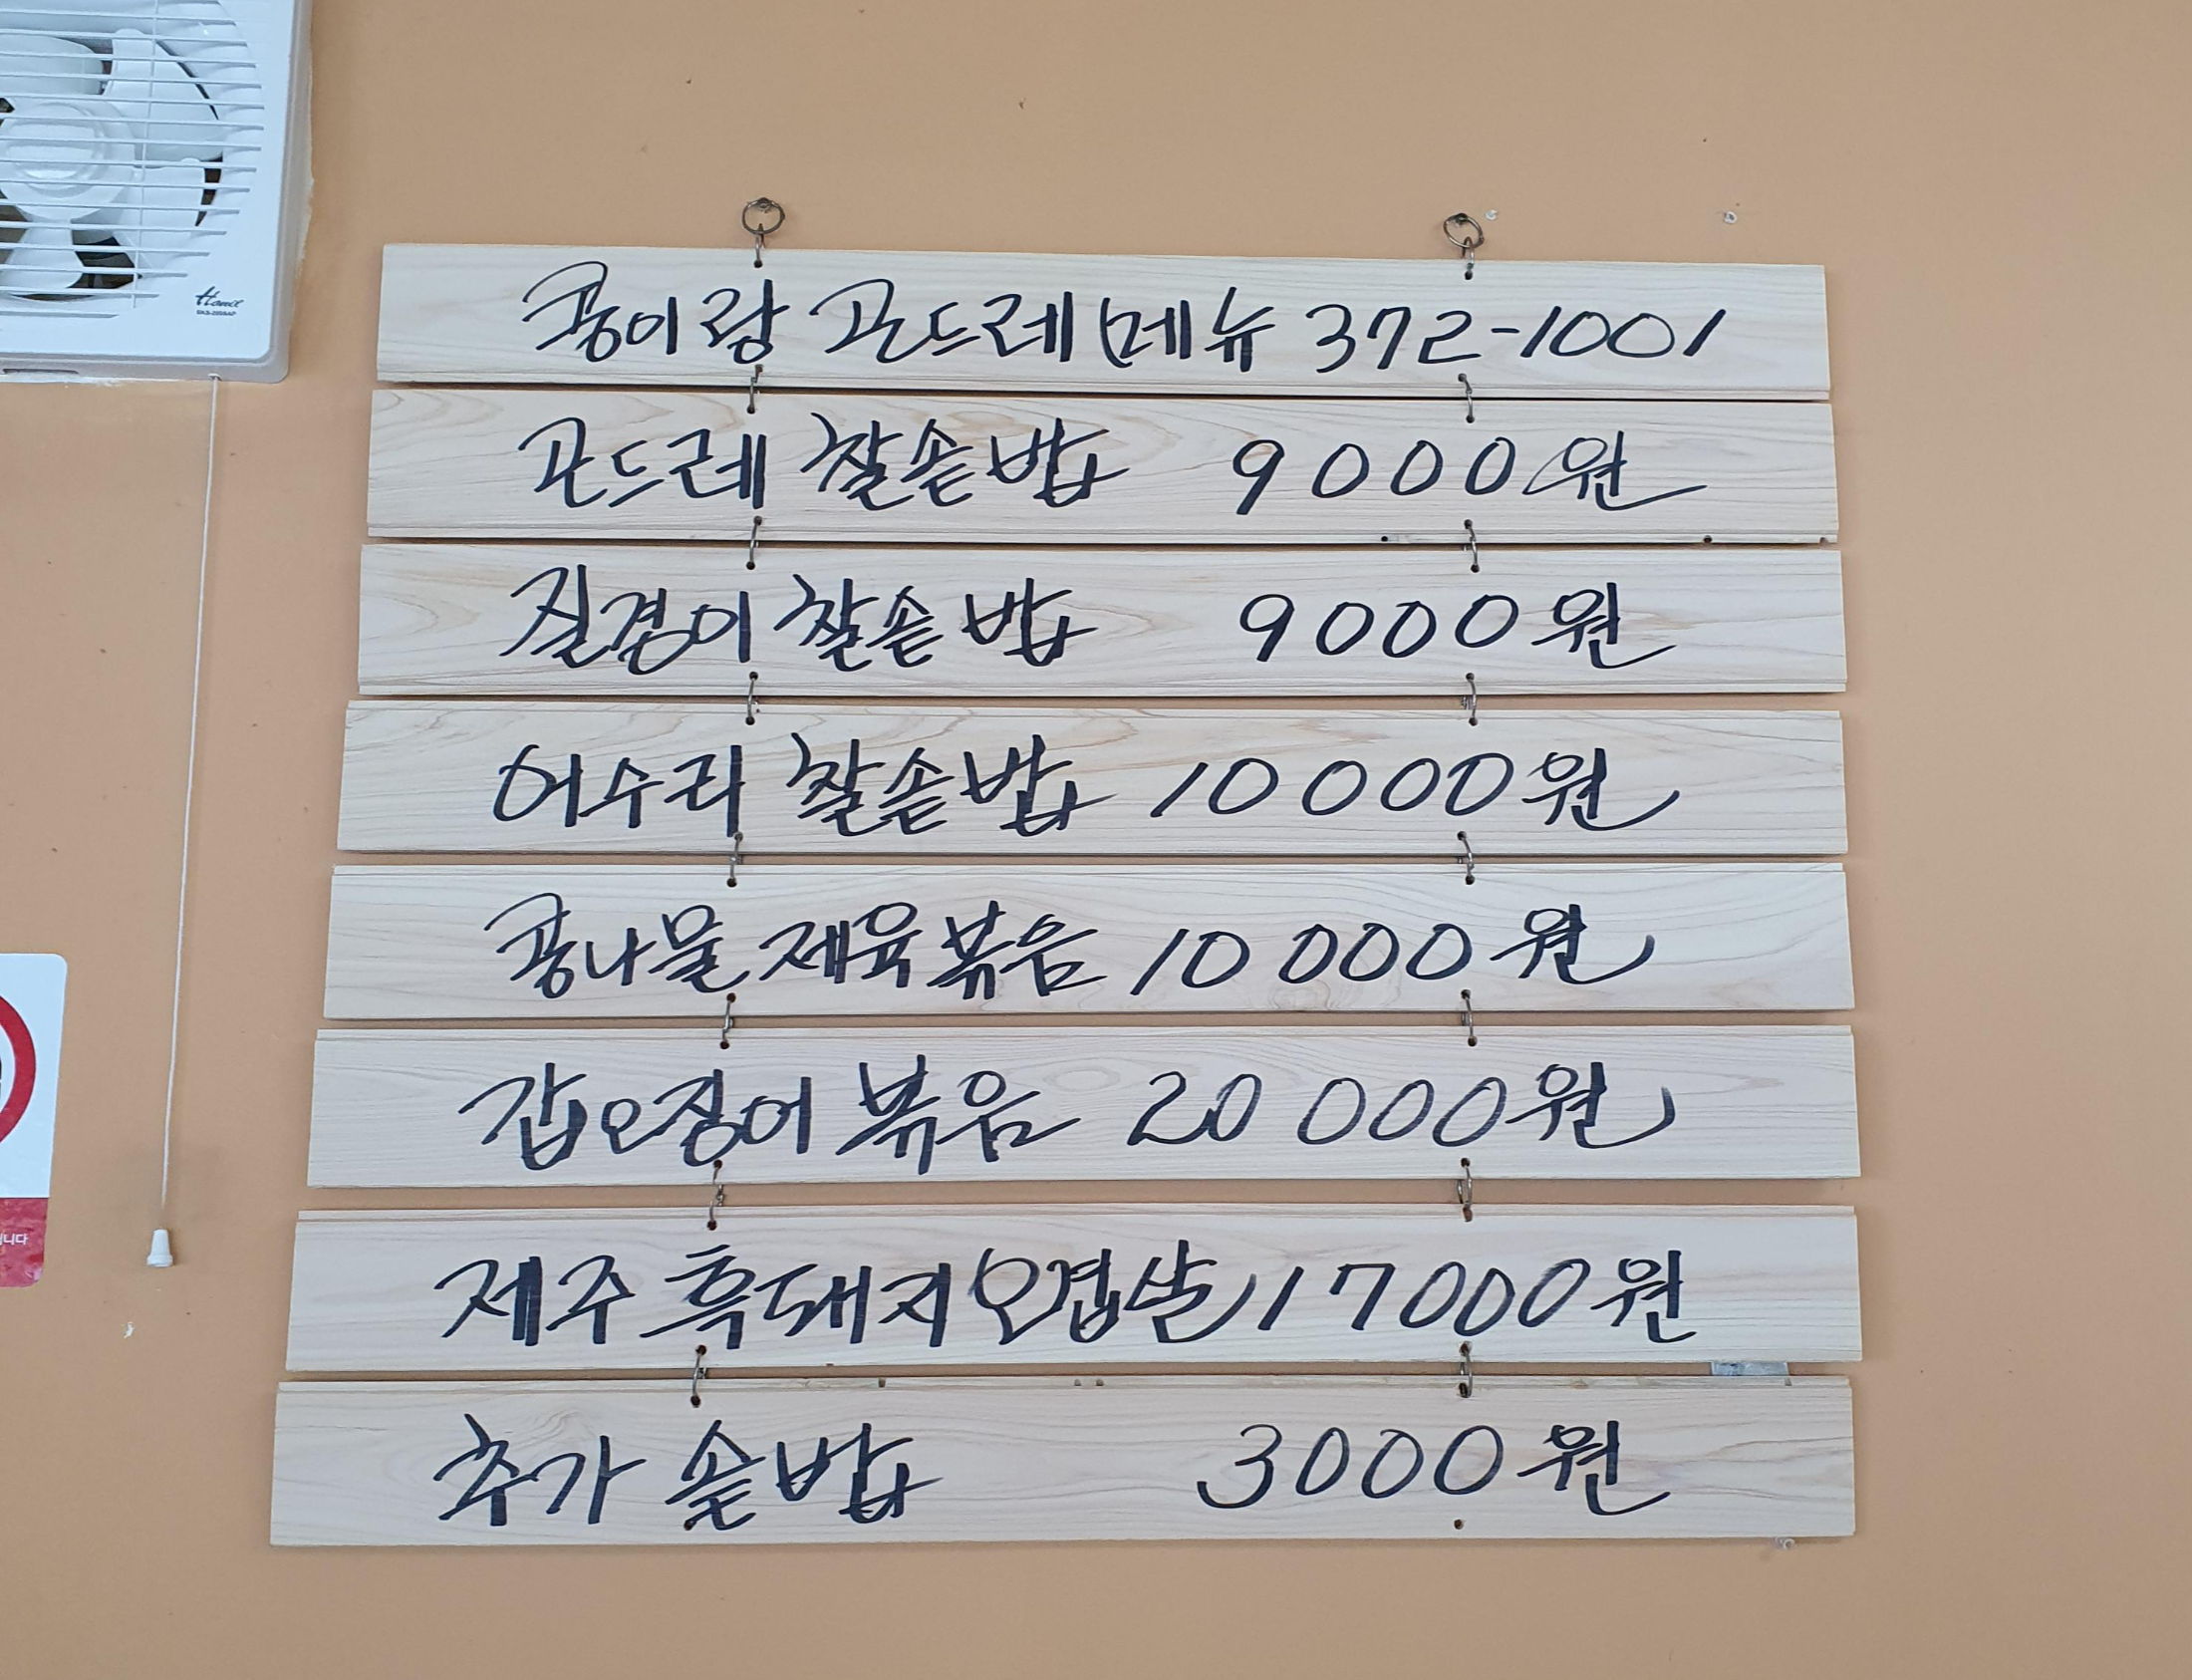 Hanil
콩이랑 곤드레 메뉴 372-1001
곤드레 찰솥밥 9000원
질경이 찰솥밥 9000원
어수리 찰솥밥 10000원
콩나물 제육볶음 10000원
갑오징어 볶음 20000원
제주 흑돼지 오겹살 17000원
추가 솥밥 3000원
니다